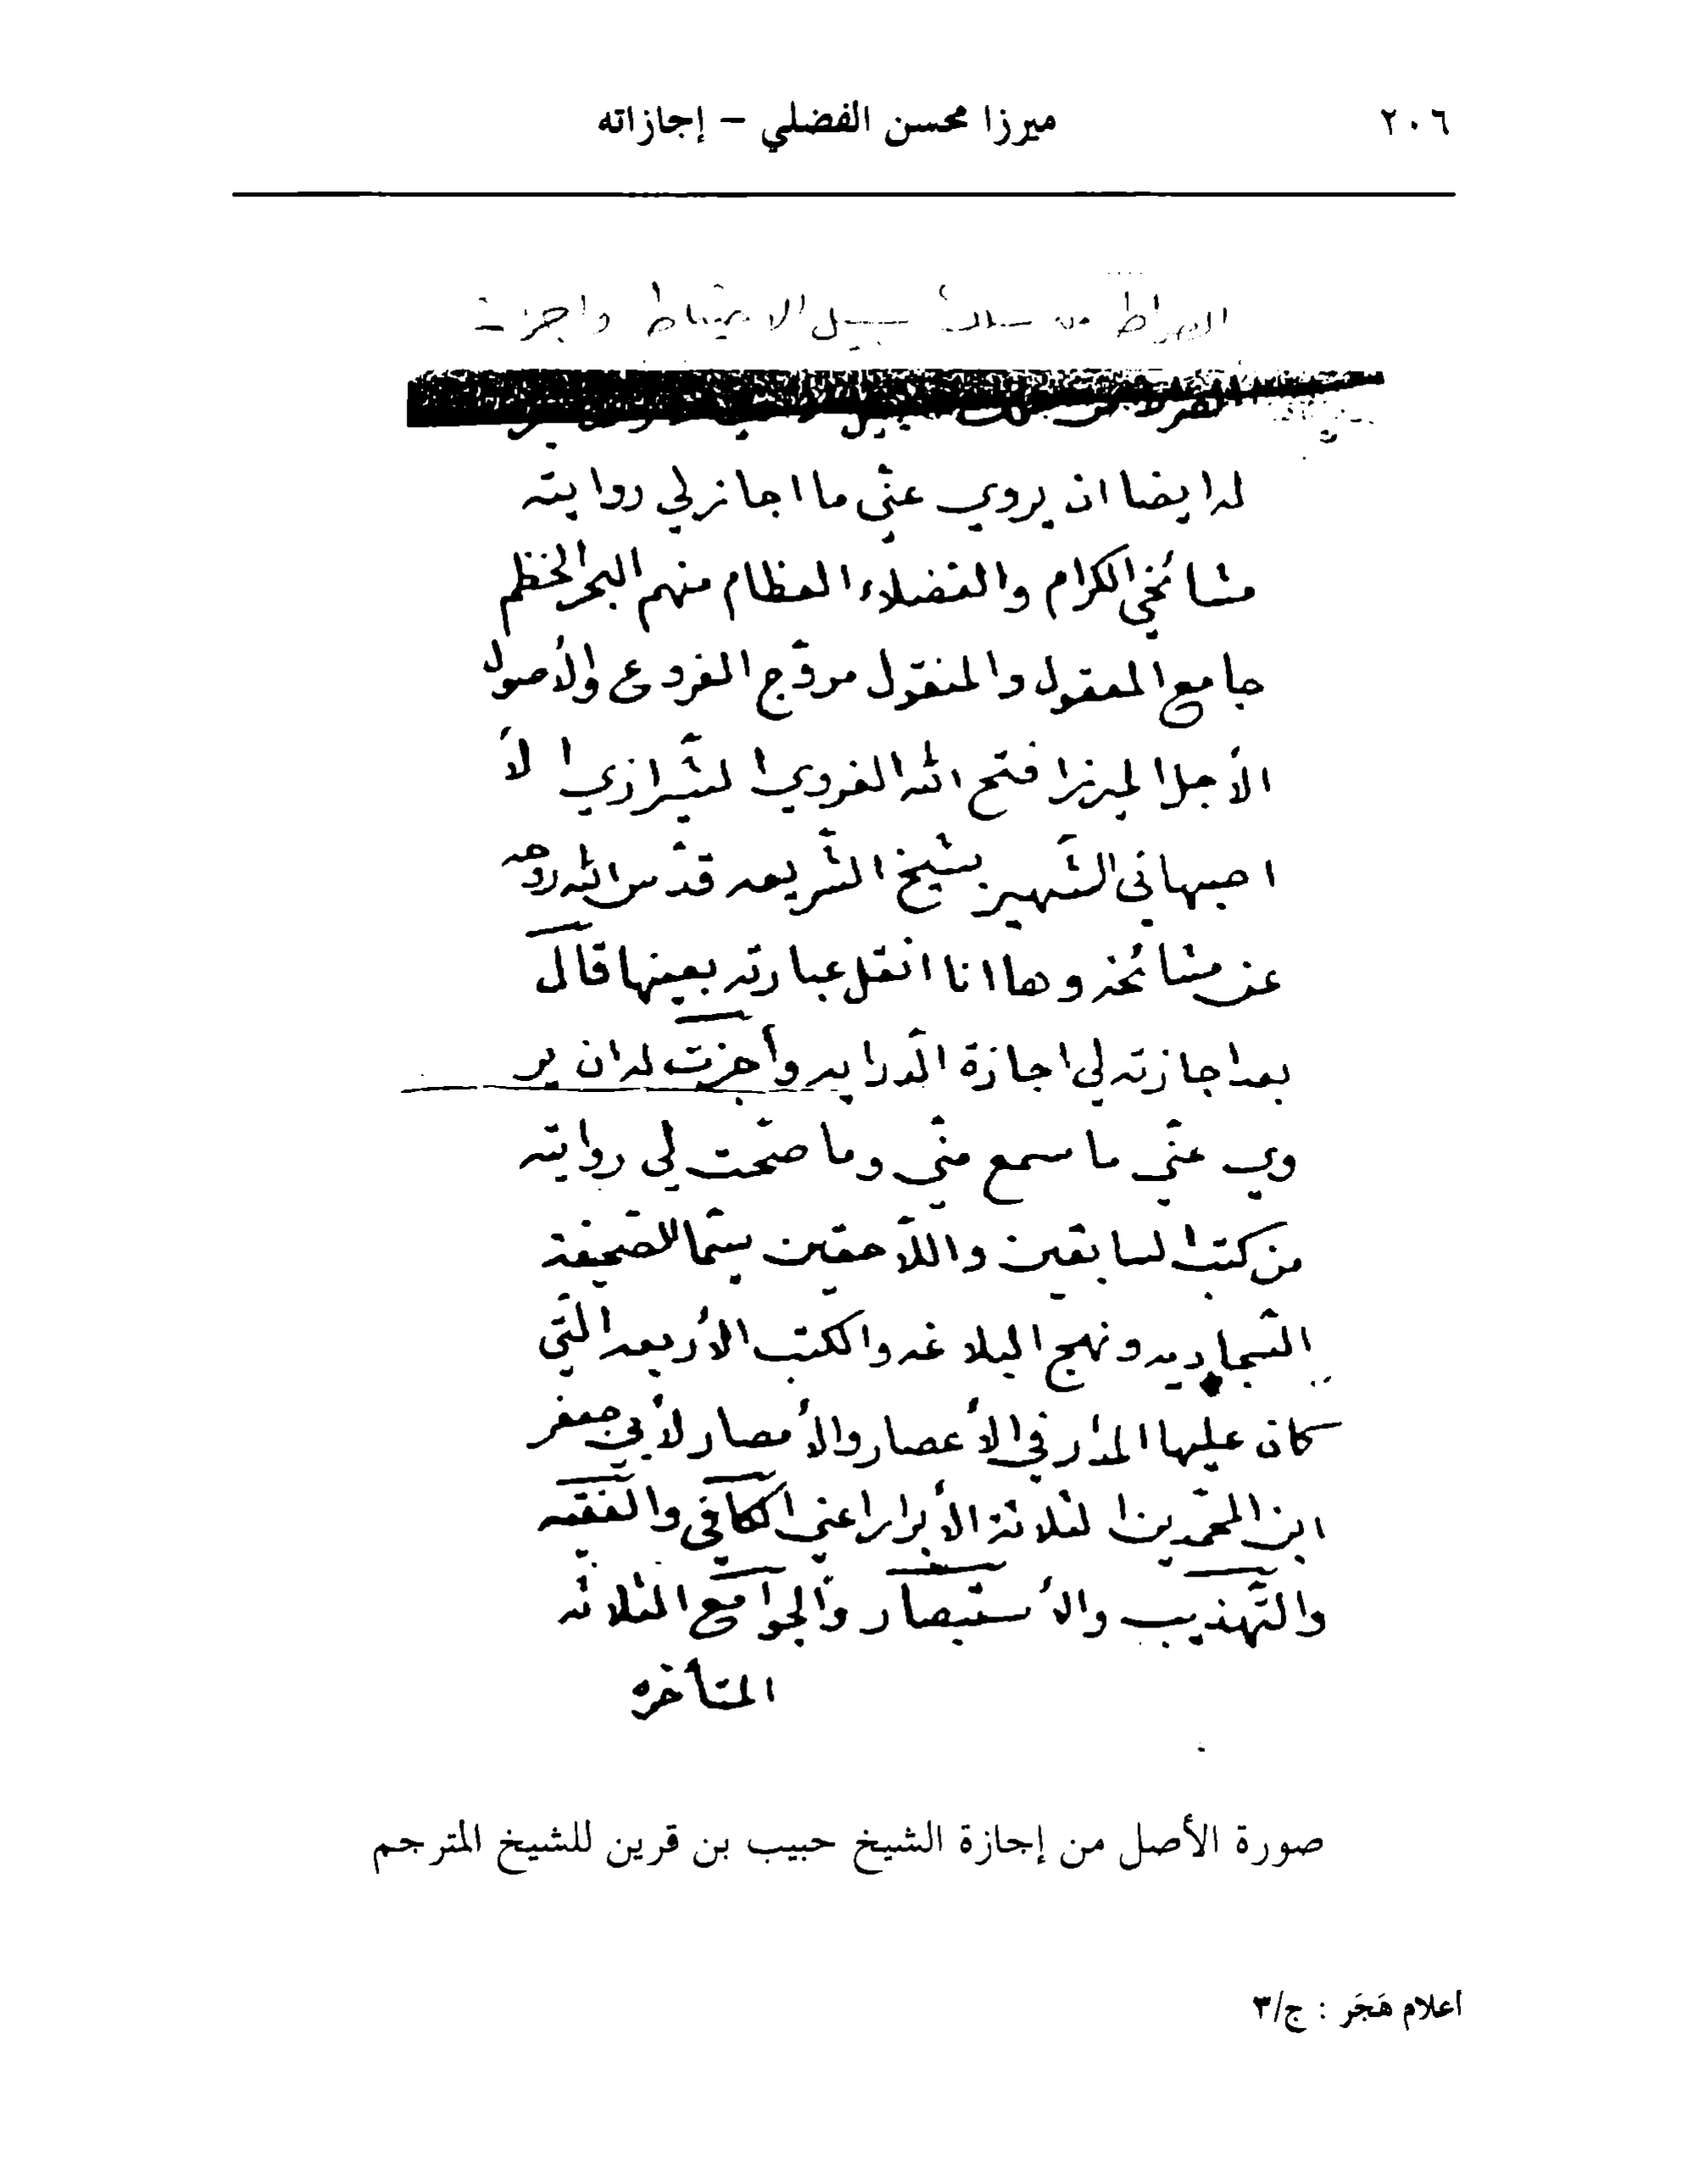 ٢٠٦
ميرزا محسن الفضلي – إجازاته
الصراط من سلك سبيل الاحتياط واجزت
له ايضا ان يروي عنّي ما اجاز لي روايته
مشائخي الكرام والفضلاء العظام منهم البحر الخظم
جامع المعقول والمنقول مروّج الفروع والأصول
الأجل الميرزا فتح الله الغروي الشّيرازي الأ
اصبهاني الشّهير بشيخ الشّريعه قدّس الله روحه
عن مشائخه وها انا انقل عبارته بعينها قال
بعد اجازته لي اجازة الدّرايه وأجزت له ان ير
وي عنّي ما سمع منّي وما صحّت لي روايته
من كتب السابقين واللّاحقين سيّما الصّحيفة
السّجاديه ونهج البلاغه والكتب الأربعه الّتي
كان عليها المدار في الأعصار والأمصار لأبي جعفر
ابن المحمّدين الثلاثة الأبرار اعني الكافي والفقيه
والتّهذيب والأستبصار والجوامع الثلاثه
المتأخره
صورة الأصل من إجازة الشيخ حبيب بن قرين للشيخ المترجم
اعلام هَجَر : ج/٣